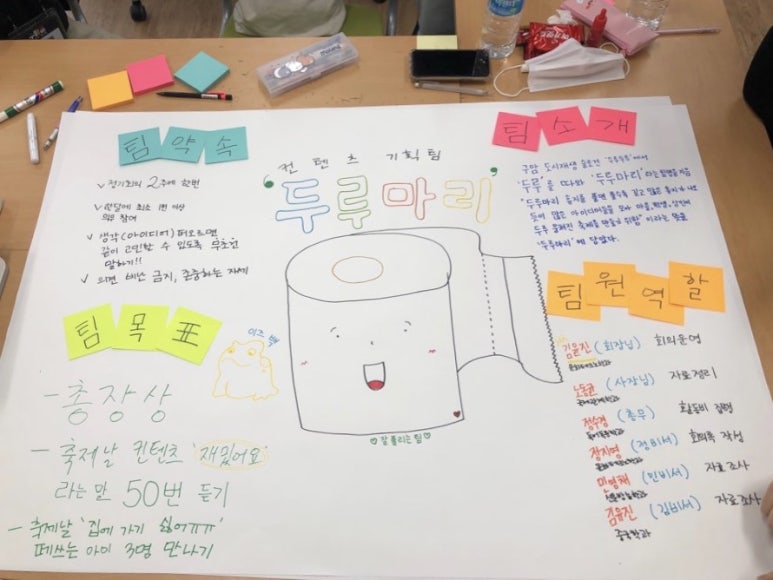 컨텐츠 기획팀
'두루마리'
팀약속
✓ 정기회의 2주에 한번
✓ 한달에 최소 1번 이상
의무 참여
✓ 생각(아이디어) 떠오르면
같이 고민할 수 있도록 무조건
말하기!!
✓ 의견 비난 금지, 존중하는 자세
팀소개
구암 도시재생 슬로건 '두루두루'에서
'두루'를 따와 '두루마리'라는 팀명을 지음
"두루마리 휴지를 풀면 풀수록 길고 많은 휴지가 나오
듯이 많은 아이디어들을 모아 마을, 학생, 상인에
두루 펼쳐진 축제를 만들기 위함" 이라는 뜻을
'두루마리'에 담았다.
팀목표
이즈 백
- 총장상
- 축제날 컨텐츠 '재밌어요'
라는 말 50번 듣기
- 축제날 '집에 가기 싫어ㅠㅠ'
떼쓰는 아이 3명 만나기
잘 풀리는 팀
팀원역할
김윤진 (회장님) 회의 운영
노동균 (사장님) 자료정리
정수경 (총무) 활동비 집행
장지영 (정비서) 회의록 작성
민영채 (민비서) 자료조사
김윤진 (김비서) 자료조사
중국학과